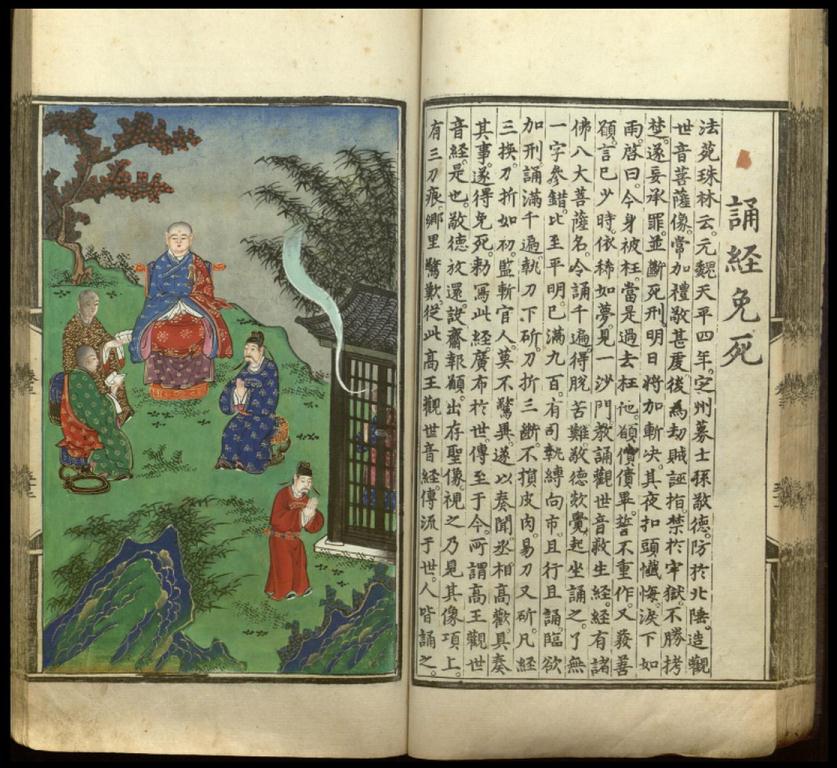 誦經免死
法苑珠林云。元魏天平四年。定州募士孫敬德。防於北陲。造觀
世音菩薩像。常加禮敬甚虔後為劫賊誣指禁於牢獄。不勝拷
楚。遂妄承罪並斷死刑明日將加斬決。其夜扣頭懺悔。淚下如
雨。啓曰。今身被枉。當是過去枉他。願償債畢。誓不重作。又發善
願。言已少時。依稀如夢。見一沙門教誦觀世音救生經。經有諸
佛八大菩薩名。令誦千遍。得脫苦難敬德欻覺起坐誦之。了無
一字參錯。比至平明。已滿九百。有司執縛向市。且行且誦。臨欲
加刑誦滿千遍。執刀下斫。刀折三斷。不損皮肉。易刀又斫。凡經
三換。刀折如初。監斬官人。莫不驚異。遂以奏聞。丞相高歡。具奏
其事。遂得免死。勅寫此經。廣布於世。傳至于今。所謂高王觀世
音經。是也。敬德放還。設齋報願。出存聖像視之乃見其像項上。
有三刀痕。鄉里驚歎。從此高王觀世音經。傳流于世。人皆誦之。